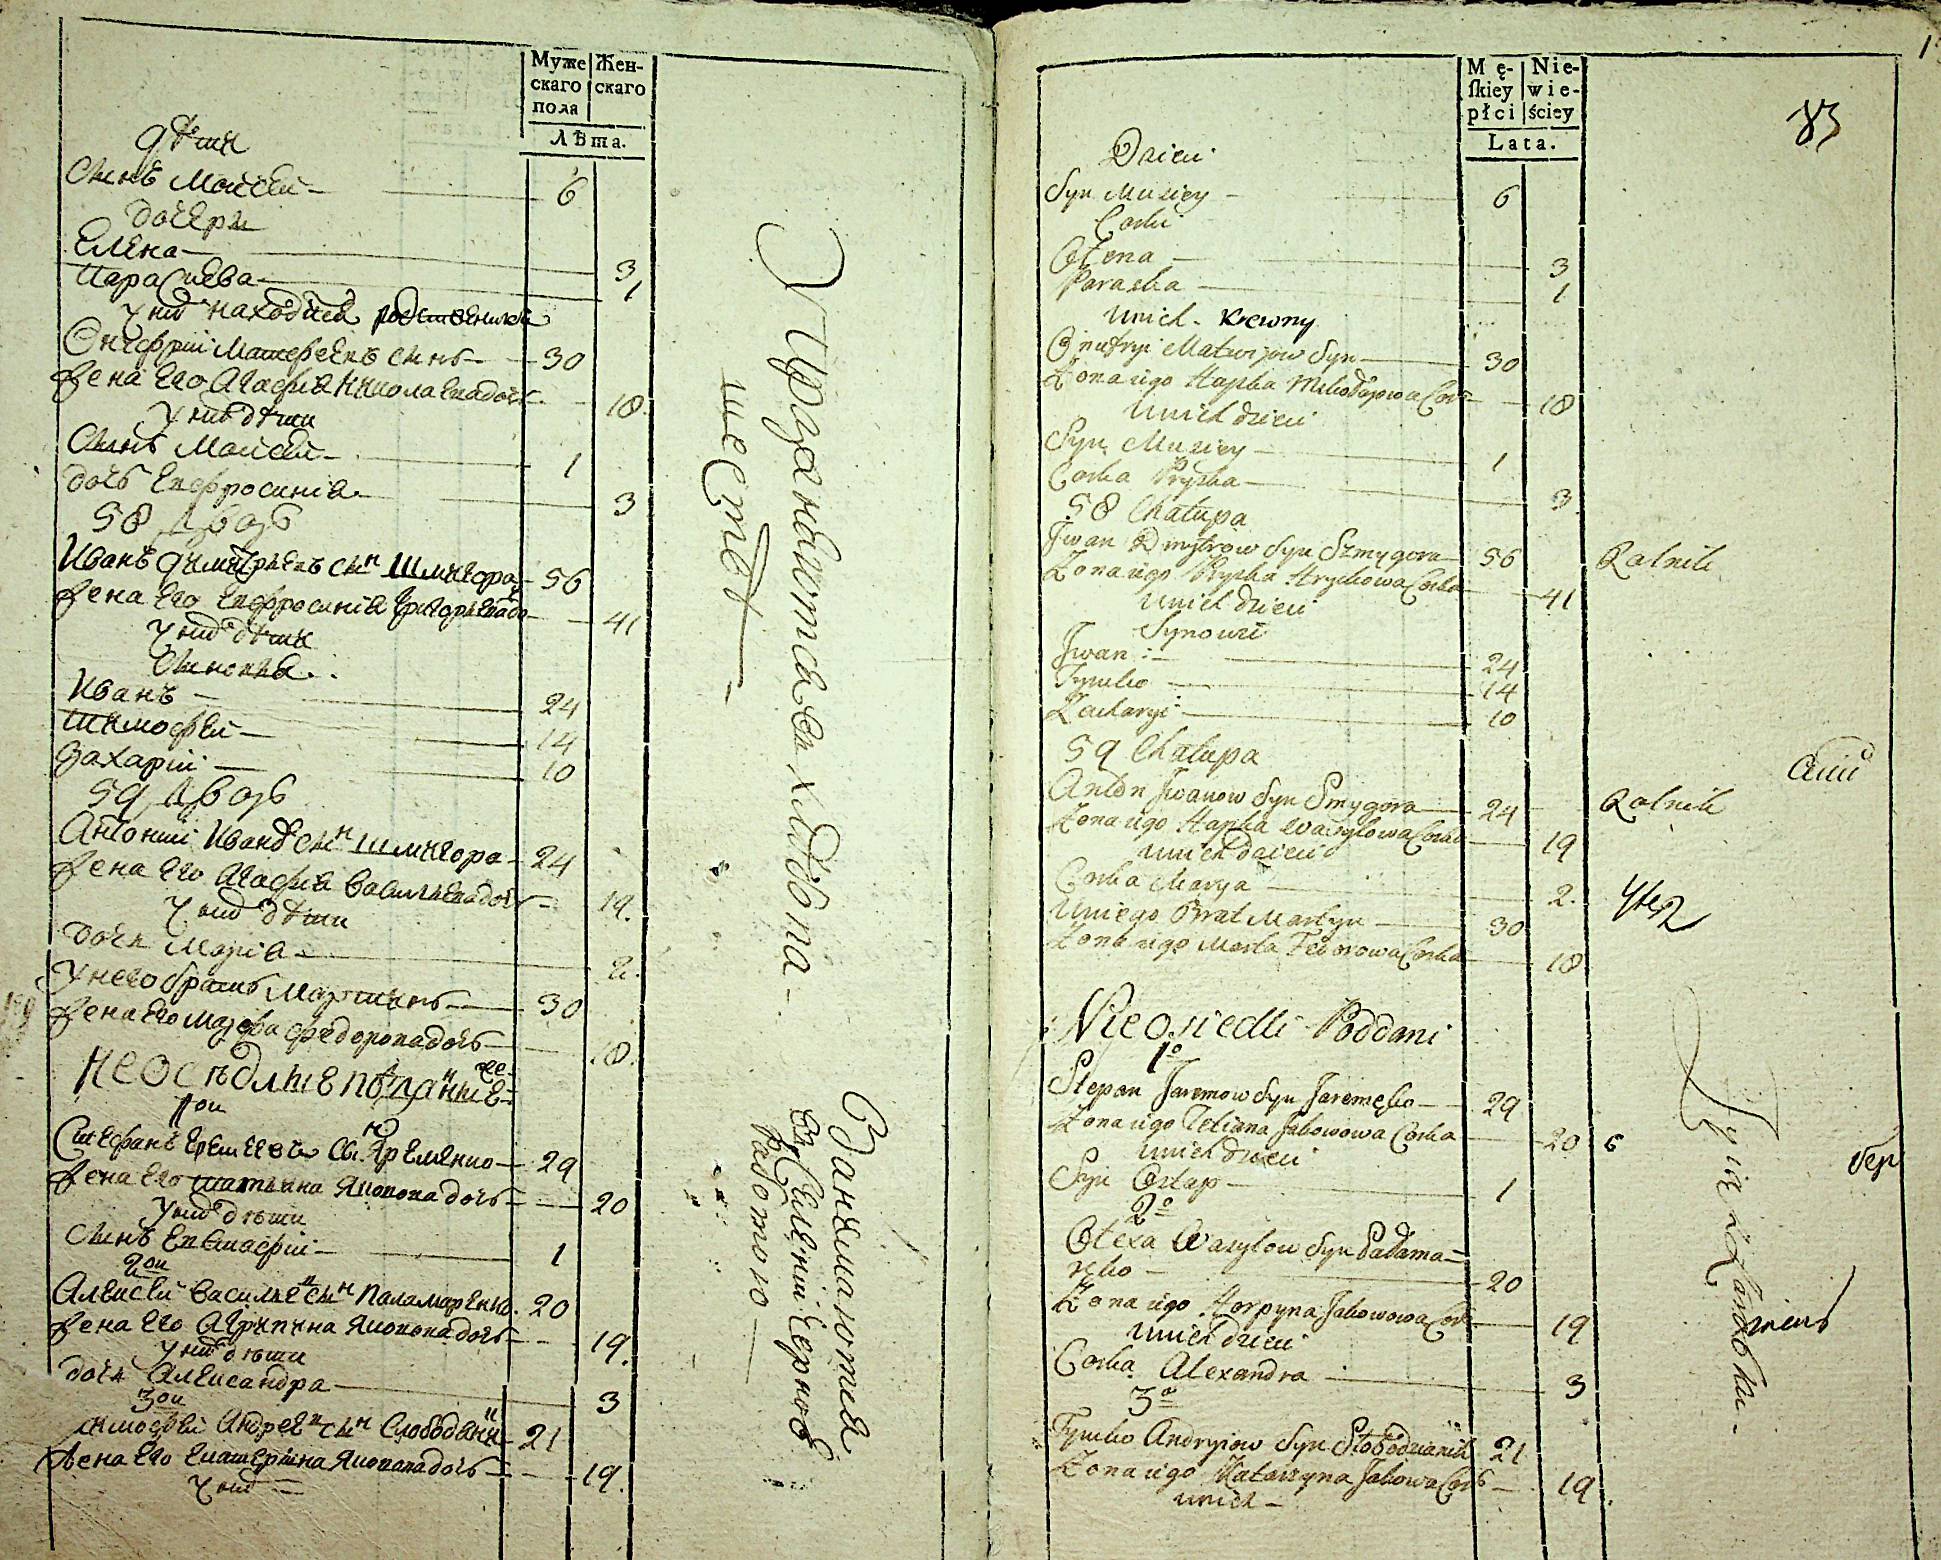 Муже
скаго
пола
Жен-
скаго
Лѣта.
дѣти
Сынъ Моисей — 6
дочери
Елена — 3
Парасиева — 1
у нихъ находится родственики
Онуфрій Матфеевъ сынъ — 30
жена его Агафия Николаева дочь — 18.
у нихъ дѣти
Сынъ Моисей — 1
дочь Евфросиния — 3
58 Дворъ
Иванъ Димитриевъ сынъ Шмигора — 56
жена его Евфросиния Григориева до — 41
у нихъ дѣти
Сыновья
Иванъ — 24
Тимофей — 14
Захарій — 10
59 Дворъ
Антоній Ивановъ сынъ Шмигора — 24
жена его Агафия Васильева дочь — 19.
у нихъ дѣти
дочь Мария — 2.
у него братъ Мартинъ — 30
жена его Марфа Федорова дочь — 18.
Неосѣдлые
1ой
Стефанъ Еремеевъ сынъ Яременко — 29
жена его Татьяна Яковова дочь — 20
у нихъ дѣти
Сынъ Евстафій — 1
2ой
Алексей Васильевъ сынъ Паламаренко. 20
жена его Агрипина Яковова дочь — 19.
у нихъ дѣти
дочь Александра — 3
3ой
Тимофей Андреевъ сынъ Слободяникъ 21
жена его Екатерина Яковова дочь — 19.
у нихъ —
Упражняются в хлебопа-
шестве —
Занимаются
черною
работою —
Mę-
skiey
płci
Nie-
wie-
ściey
Lata.
83
Dzieci
Syn Musiey — 6
Corki
Ołena — 3
Paraska — 1
U nich Krewny
Onufryi Matwijow Syn — 30
Zona iego Hapka Mikołajowa Cor — 18
U nich dzieci
Syn Musiey — 1
Corka Pryska — 3
58 Chałupa
Jwan Dmytrow Syn Szmygora — 56 Rolnik
Zona iego Pryska Hryckowa Corka — 41
U nich dzieci
Synowi
Jwan — 24
Tymko — 14
Zacharyi — 10
59 Chałupa
Anton Jwanow Syn Smygora — 24 Rolnik
Zona iego Hapka Wasylowa Corka — 19
U nich dzieci
Corka Marya — 2.
U niego Brat Martyn — 30
Zona iego Marta Fedorowa Corka — 18
Nieosiedli Poddani
1o
Stepan Jaremow Syn Jaremęko — 29
Zona iego Tetiana Jakowowa Corka — 20 6
U nich dzieci
Syn Ostap — 1
2o
Ołexa Wasylow Syn Pałama-
ręko — 20
Zona iego Horpyna Jakowowa Cor — 19
U nich dzieci
Corka Alexandra — 3
3o
Tymko Andryiow Syn Słobodzianik 21
Zona iego Katarzyna Jakowa Cor — 19.
U nich —